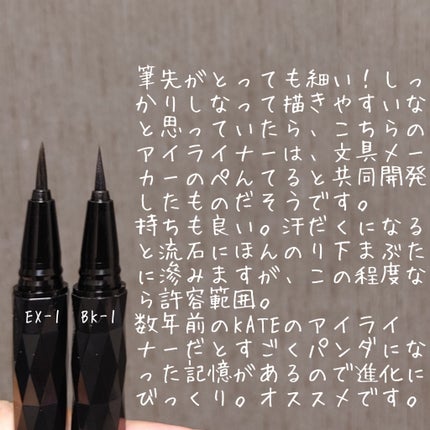 筆先がとっても細い！しっ
かりしなって描きやすいな
と思っていたら、こちらの
アイライナーは、文具メー
カーのぺんてると共同開発
したものだそうです。
持ちも良い。汗だくになる
と流石にほんのり下まぶた
に滲みますが、この程度な
ら許容範囲。
数年前のKATEのアイライ
ナーだとすごくパンダにな
った記憶があるので進化に
びっくり。オススメです。
EX-1 BK-1